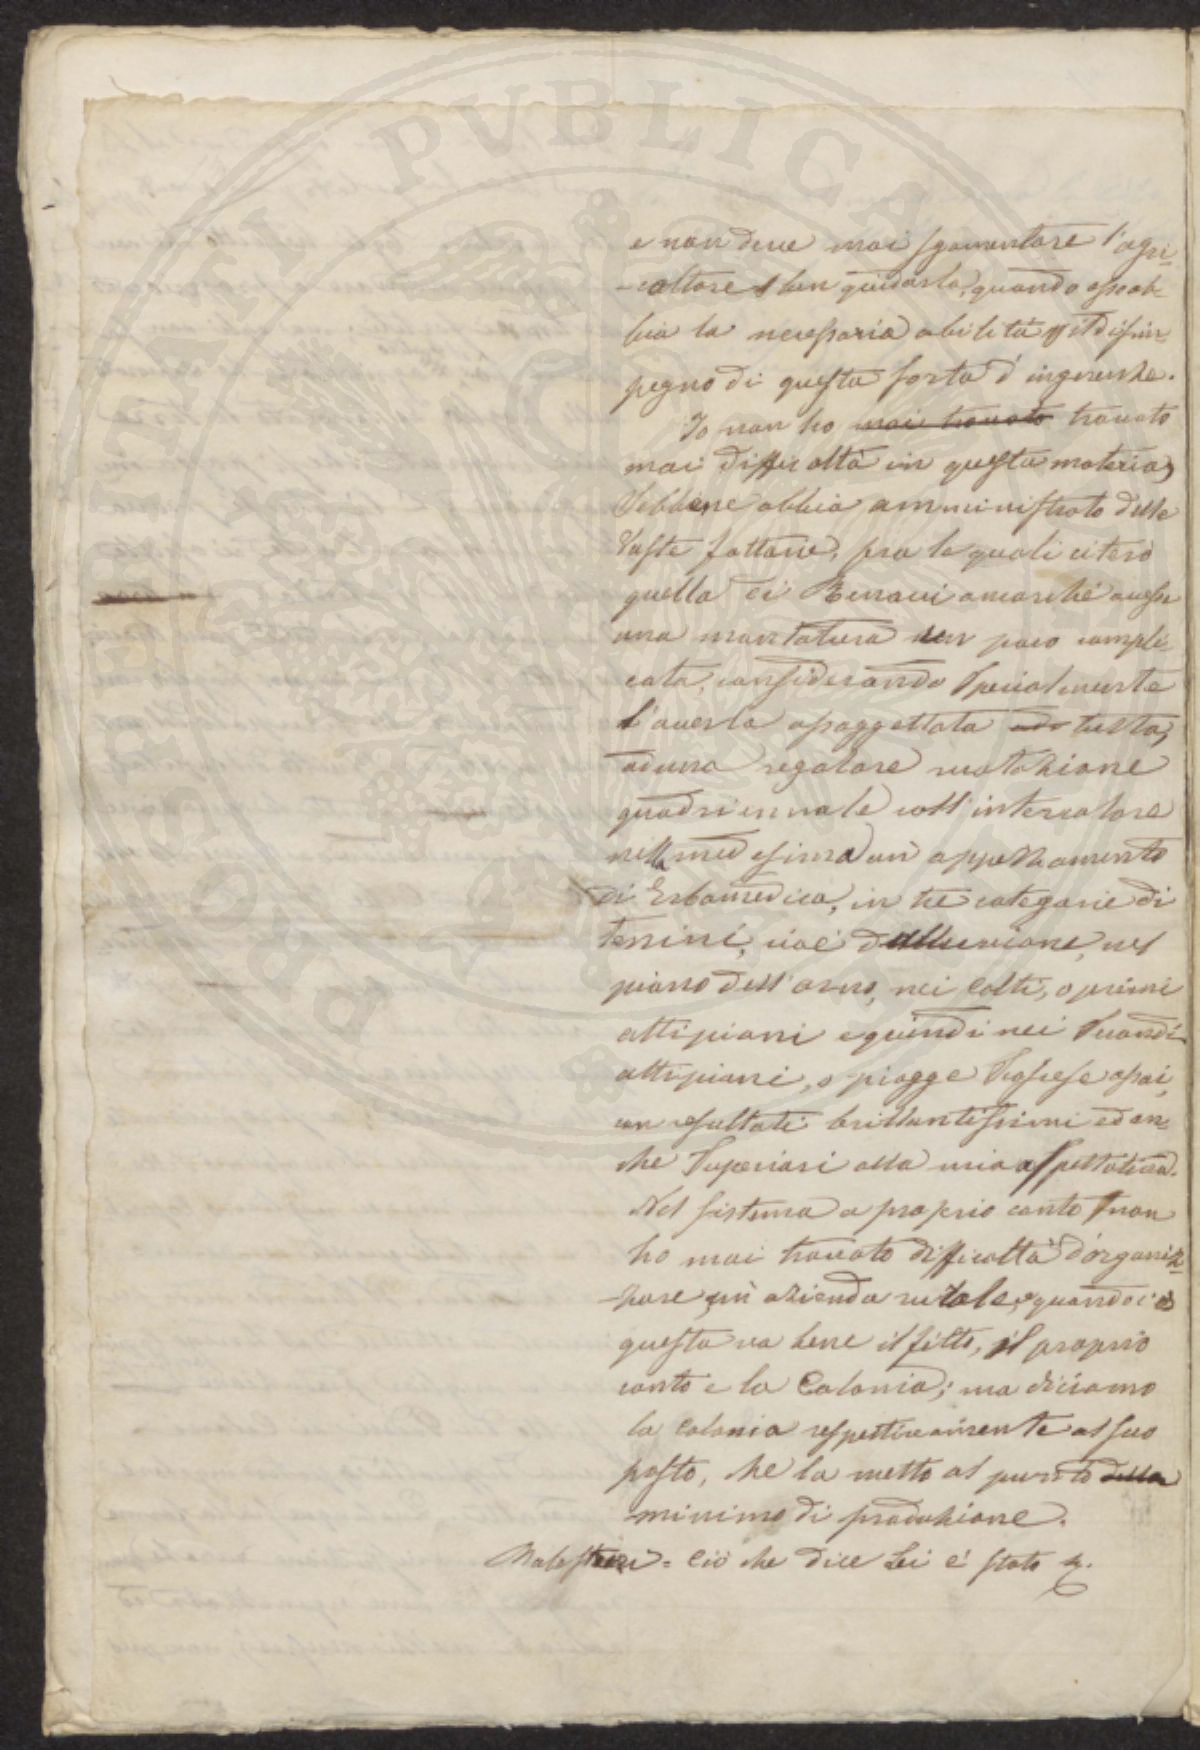 e non deve mai sgomentare l'agri-
-coltore ben guidarla, quando esso ab-
bia la necessaria abilità il disim-
pegno di questa sorta d'ingerenze.
Io non ho mai trovato trovato
mai difficoltà in questa materia,
Sebbene abbia amministrato delle
Vaste fattorie, fra le quali citerò
quella di Renacci ancorché avesse
una montatura un poco compli-
cata, considerando Specialmente
l'averla assoggettata tutta,
ad una regolare ruotazione
quadriennale coll'intercalare
nella medesima un appezzamento
di Erbamedica, in tre categorie di
terreni, cioè d'alluvione, nel
piano dell'Arno, nei Colti, o primi
altipiani e quindi nei Secondi
altipiani, o piagge Scoscese assai,
con resultati brillantissimi ed an-
che Superiori alla mia aspettativa.
Nel sistema a proprio conto non
ho mai trovato difficoltà d'organiz-
-zare un'azienda rurale, quando c'è
questa va bene il fitto, il proprio
conto e la Colonia; ma diciamo
la Colonia respettivamente al suo
posto, che la metto al punto della
minimo di produzione.
= Ciò che dice Lei è stato
PRINCIPALI PVBLICA